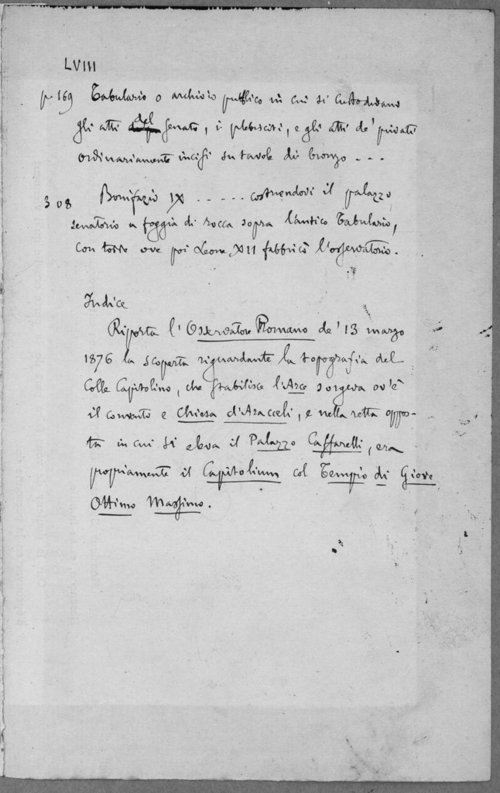 LVIII
p. 169 Tabulario o archivio pubblico in cui si custodivano
gli atti del senato, i plebisciti, e gli atti de' privati
ordinariamente incisi su tavole di bronzo - - -
308 Bonifazio IX - - - - - - costruendovi il palazzo
senatorio a foggia di rocca sopra l'antico Tabulario,
con torre ove poi Leone XII fabbricò l'osservatorio.
Indice
Riporta l'Osservatore Romano de' 13 marzo
1876 la scoperta riguardante la topografia del
Colle Capitolino, che stabilisce l'Arce sorgeva ov'è
il convento e Chiesa d'Aracoeli, e nella vetta oppos-
ta in cui si eleva il Palazzo Caffarelli, era
propriamente il Capitolium col Tempio di Giove
Ottimo Massimo.